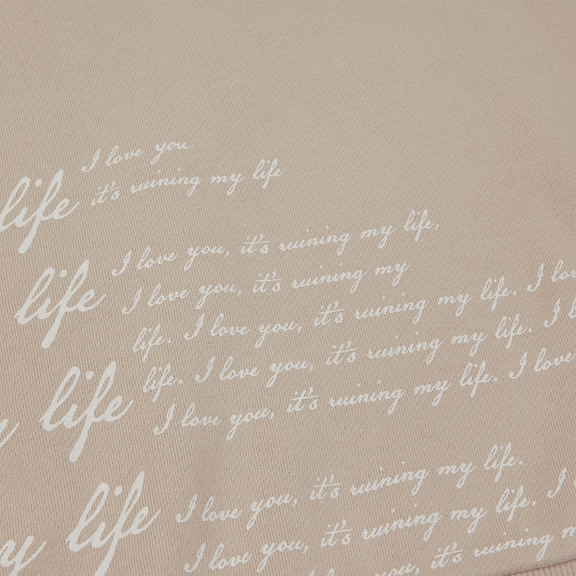 I love you
life it's ruining my life
I love you, it's ruining my life,
life I love you, it's ruining my
life. I love you, it's ruining my life. I
life life. I love you, it's ruining my life. I
I love you, it's ruining my life. I love
I love you, it's ruining my life.
life I love you, it's ruining my life. I
I love you, it's ruining my life.
you, it's ruining